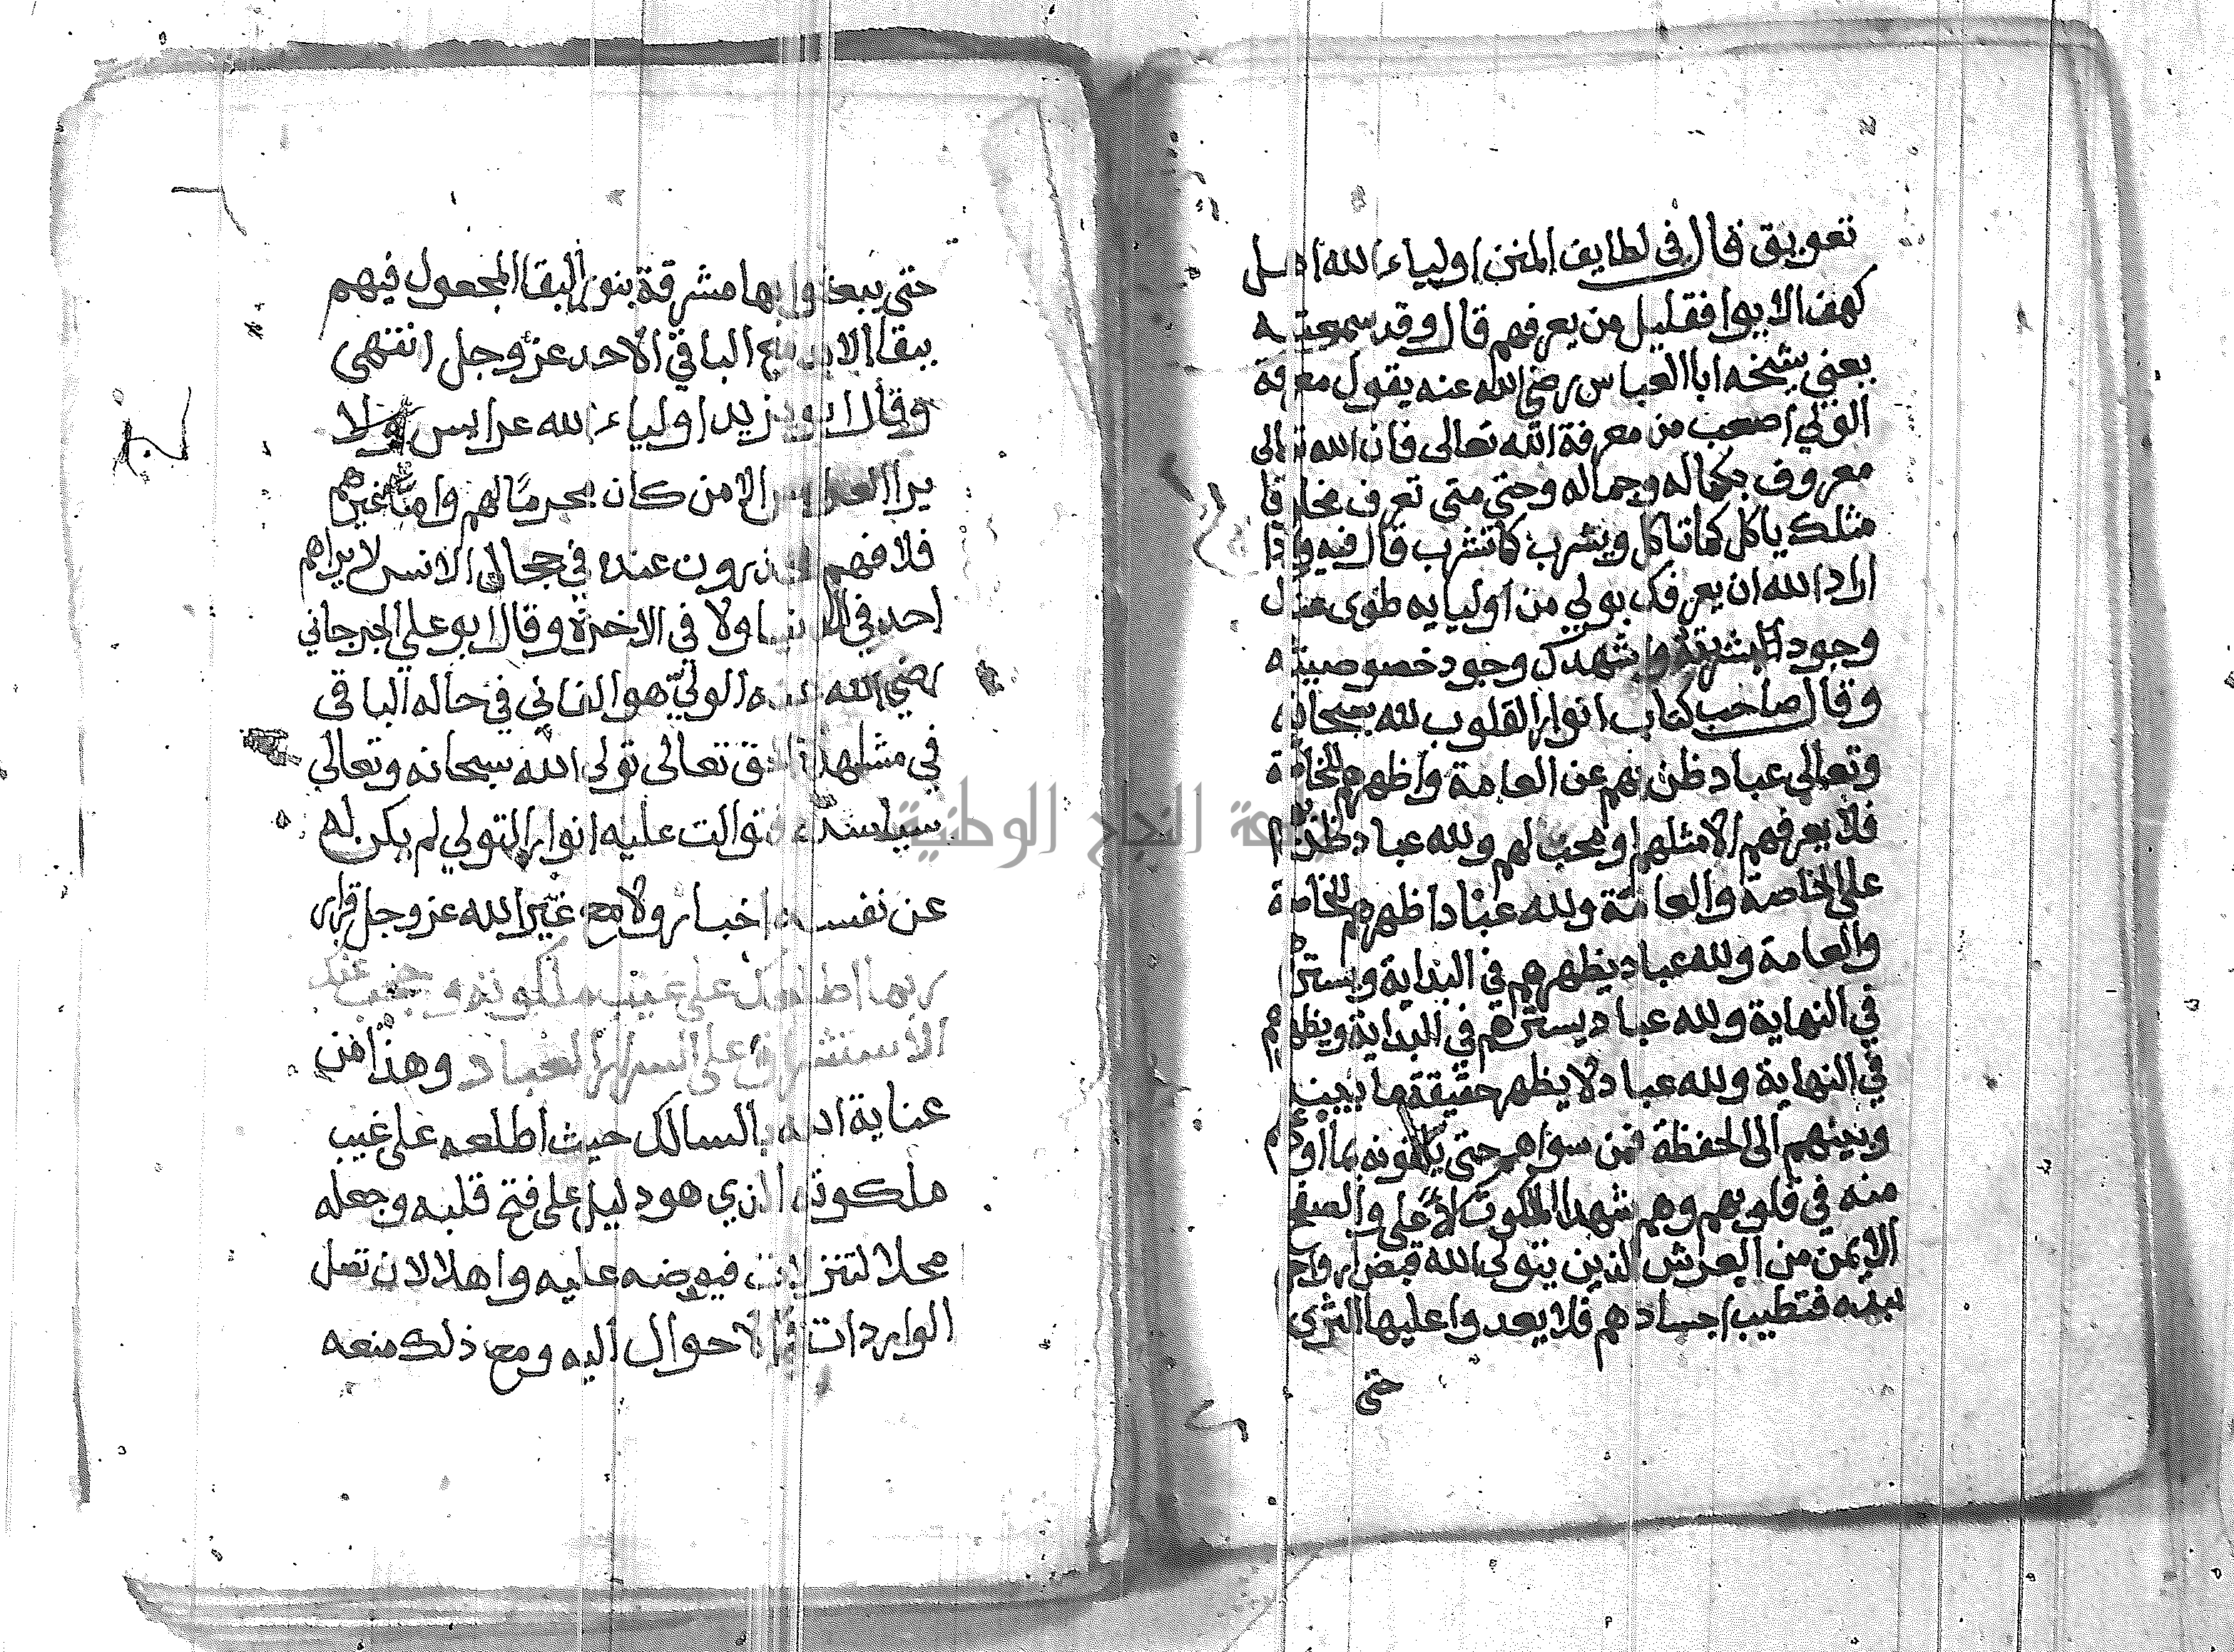 تعويق قال في لطايف المنن اولياء الله اهل
كهف الايوا فقليل من يعرفهم قال وقد سمعته
يعني شيخه ابا العباس رضي الله عنه يقول معرفة
الولي اصعب من معرفة الله تعالى فان الله تعالى
معروف بكماله وجماله وحتى متى تعرف مخلوقا
مثلك ياكل كما تاكل ويشرب كما تشرب قال فيه واذا
اراد الله ان يعرفك بولي من اوليايه طوى عنك
وجود بشريته واشهدك وجود خصوصيته
وقال صاحب كتاب انوار القلوب لله سبحانه
وتعالى عباد ظن بهم عن العامة واظهرهم للخاصة
فلا يعرفهم الا مثلهم او محب لهم ولله عباد ظن بهم
على الخاصة والعامة ولله عبادا اظهرهم للخاصة
والعامة ولله عباد يظهرهم في البداية ويسترهم
في النهاية ولله عباد يسترهم في البداية ويظهرهم
في النهاية ولله عباد لا يظهر حقيقة ما بينه
وبينهم الى الحفظة فمن سواهم حتى يلقونه بما اودعهم
منه في قلوبهم وهم شهدا الملكوت الاعلى والصفح
الايمن من العرش الذين يتولى الله قبض ارواحهم
بيده فتطيب اجسادهم فلا يعدوا عليها الثرى
حتى
حتى يبعثوا بها مشرقة بنور البقا المجعول فيهم
ببقا الابد مع الباقي الاحد عز وجل انتهى
وقال ابو يزيد اولياء الله عرايس ولا
يرا العرايس الا من كان محرما لهم واما غيرهم
فلا فهم مخدرون عنده في حجال الانس لا يراهم
احد في الدنيا ولا في الاخرة وقال ابو علي الجرجاني
رضي الله عنه الولي هو الفاني في حاله الباقي
في مشاهدة الحق تعالى تولى الله سبحانه وتعالى
سياسته فتوالت عليه انوار التولي لم يكن له
عن نفسه اخبار ولا مع غير الله عز وجل قرار
ربما اطلعك على غيب ملكوته وحجب عنك
الاستشراف على اسرار العباد وهذا من
عناية الله بالسالك حيث اطلعه على غيب
ملكوته الذي هو دليل على فتح قلبه وجعله
محلا لتنزلات فيوضه عليه واهلا لان تصل
الواردات والاحوال اليه ومع ذلك منعه
جامعة النجاح الوطنية